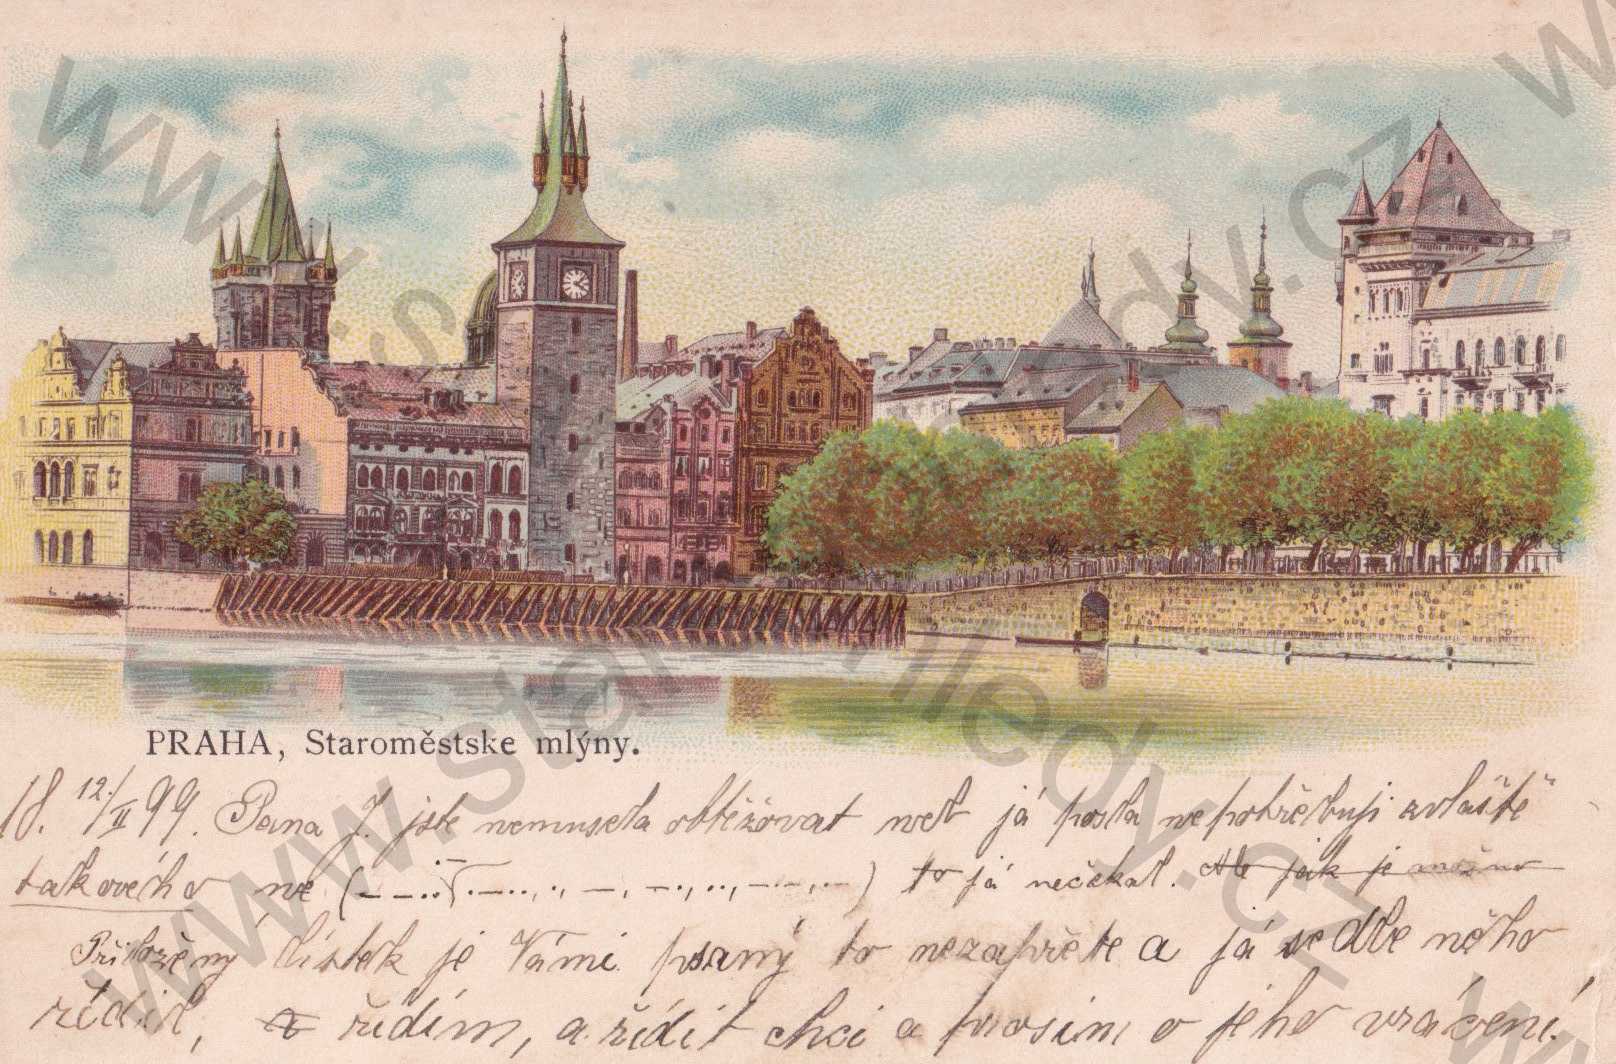 PRAHA, Staroměstske mlýny.
18. 12/II 99. Pana J. jste nemusela obtěžovat neb já posla nepotřebuji zvláště
takového ne (— — ..  — .. ., —, — ., .., — . —, . —) to já nečekal. Ale jak je možno
Přiložený lístek je Vámi psaný to nezapřete a já se dle něho
řídil, a řídím, a řídit chci a prosím o jeho vrácení.
www.starepohledy.cz
www.starepohledy.cz